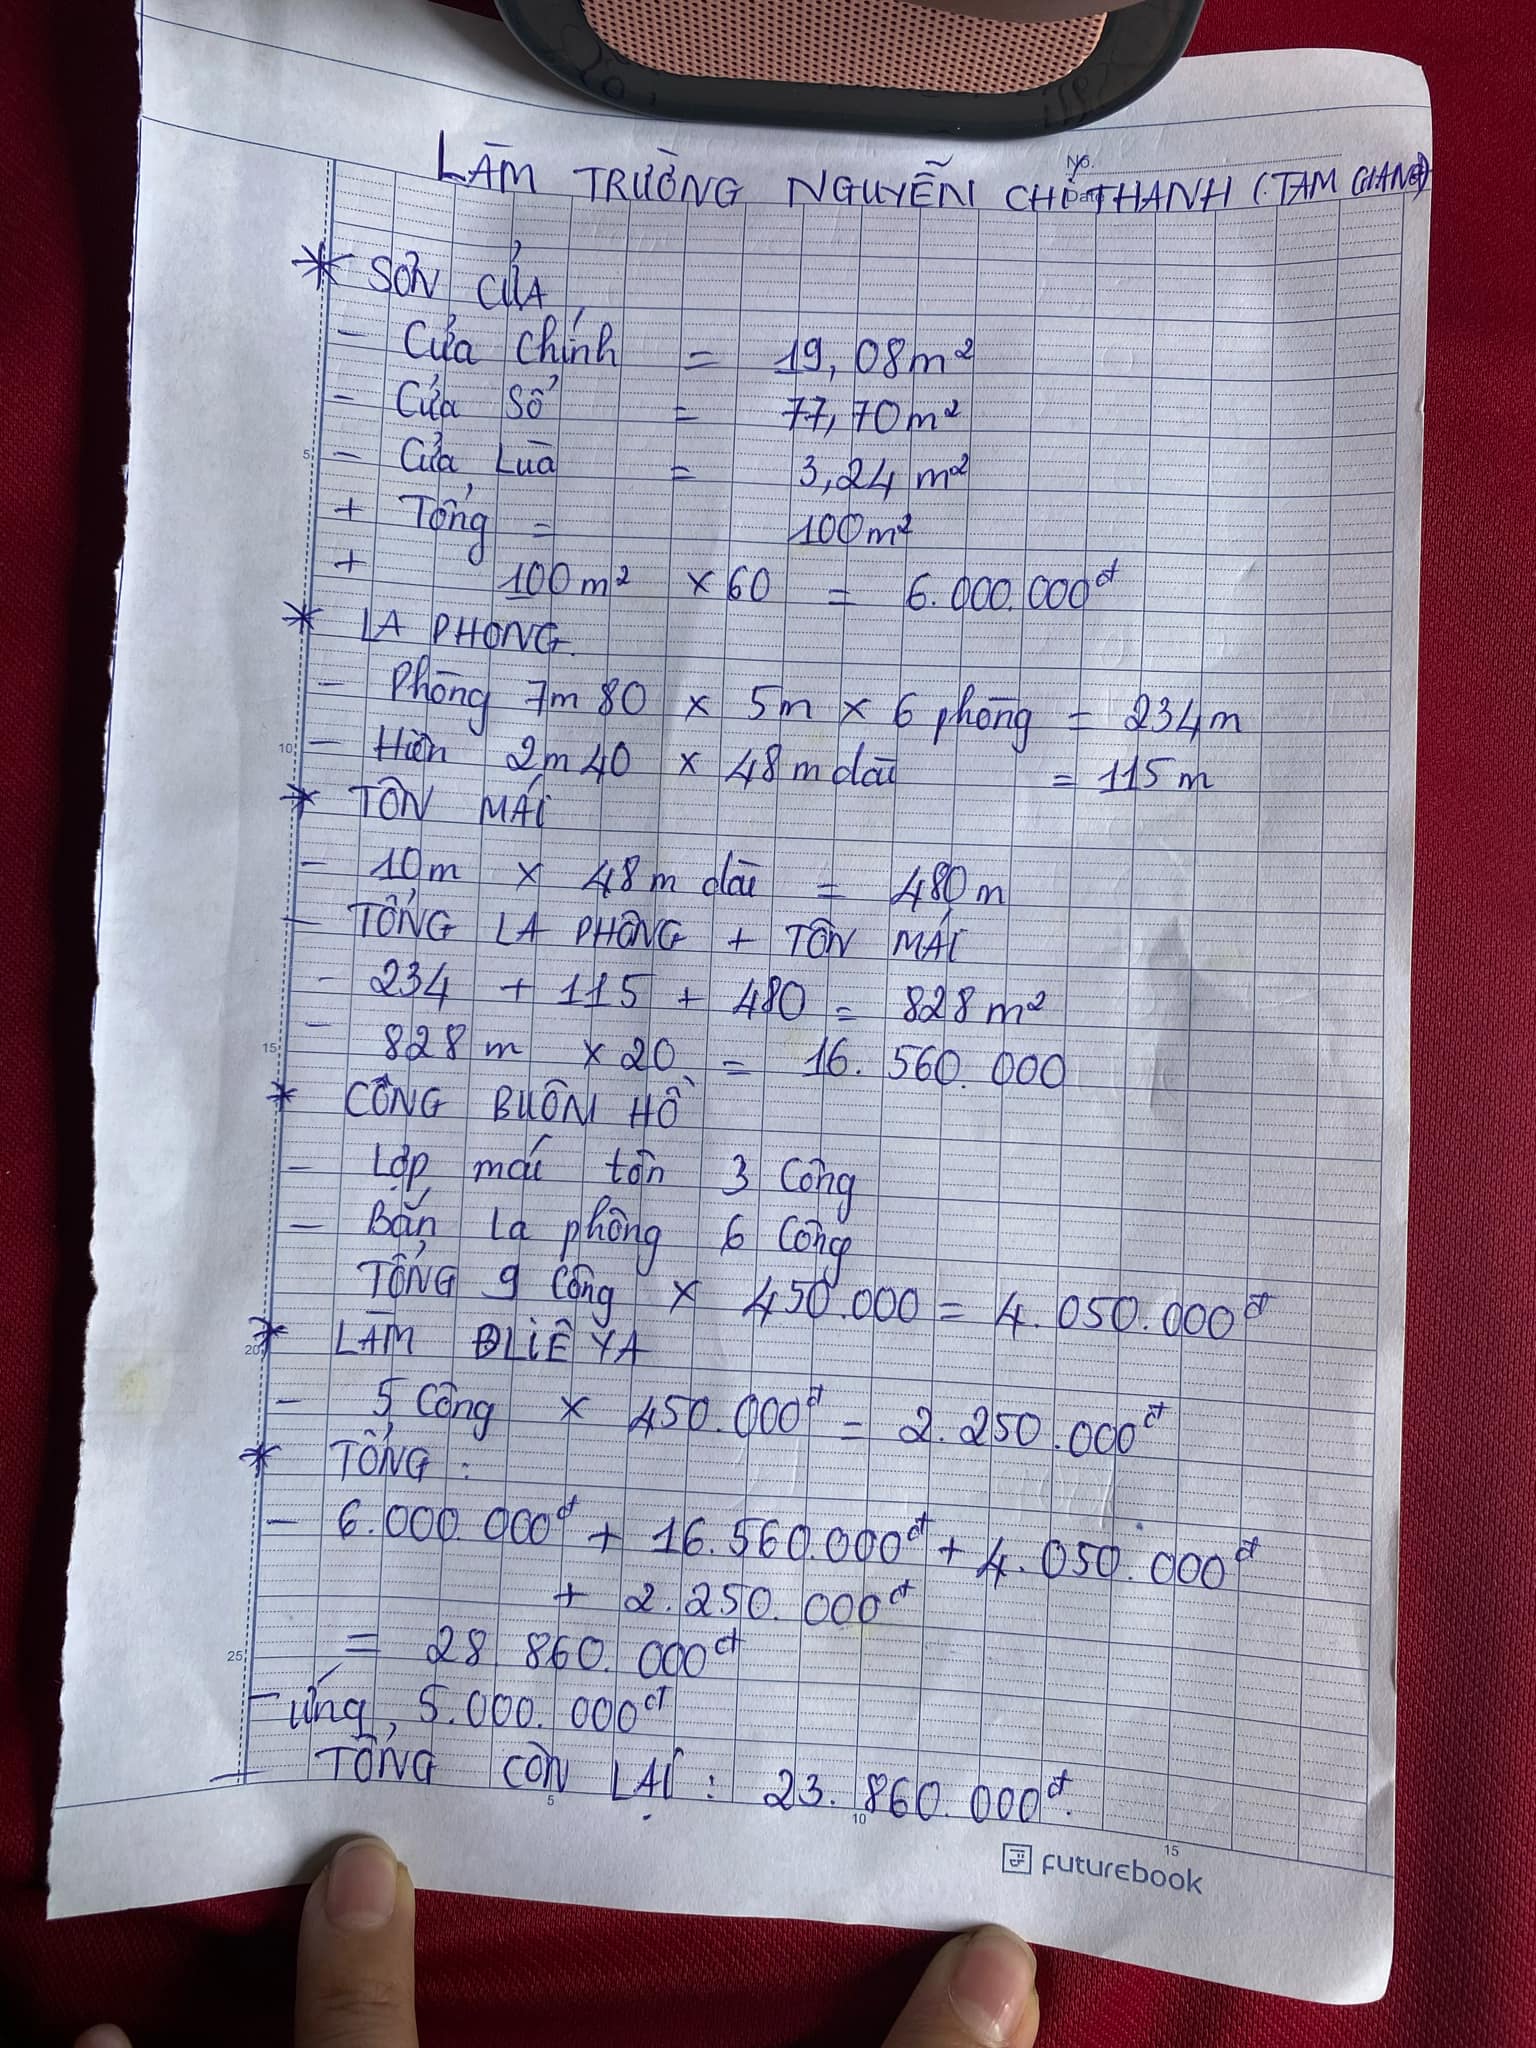 LÀM TRƯỜNG NGUYỄN CHÍ THANH (TAM GIANG)
No.
* SƠN CỬA
- Cửa chính = 19,08m²
- Cửa Sổ = 77,70m²
5 - Cửa Lùa = 3,24 m²
+ Tổng = 100m²
+ 100m² × 60 = 6.000.000đ
* LA PHONG.
- Phòng 7m80 × 5m × 6 phòng = 234m
10 - Hiên 2m40 × 48m dài = 115m
* TÔN MÁI
- 10m × 48m dài = 480m
- TỔNG LA PHÔNG + TÔN MÁI
- 234 + 115 + 480 = 828m²
15 - 828m × 20 = 16.560.000
* CÔNG BUÔN HỒ
- Lợp mái tôn 3 Công
- Bắn la phông 6 Công
TỔNG 9 Công × 450.000 = 4.050.000đ
20 * LÀM ĐLIÊ YA
- 5 Công × 450.000đ = 2.250.000đ
* TỔNG :
- 6.000.000đ + 16.560.000đ + 4.050.000đ
+ 2.250.000đ
25 = 28 860.000đ
- ứng, 5.000.000đ
+ TỔNG CÒN LẠI : 23.860.000đ.
5 10 15
futurebook